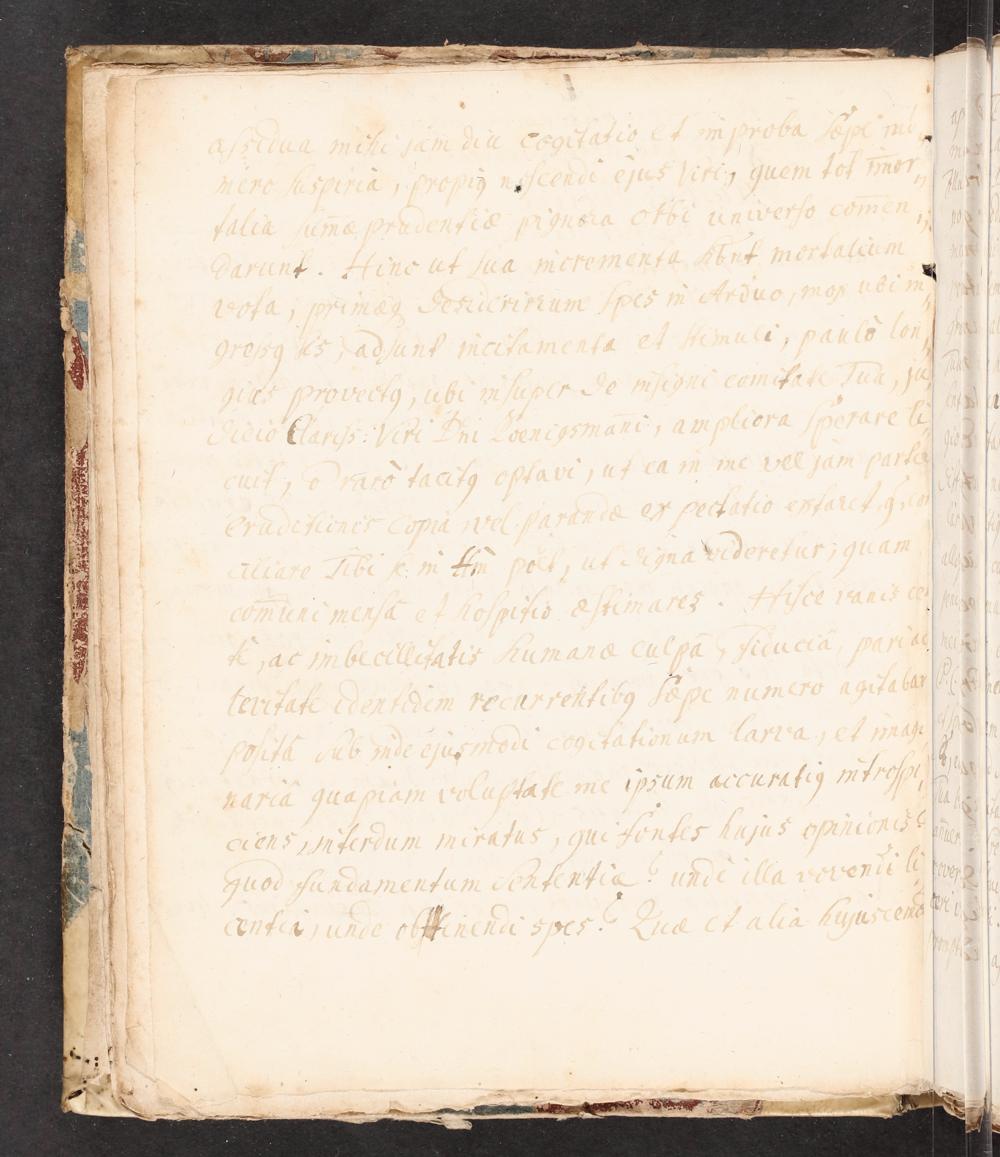 assidua mihi jam diu cogitatio et improba sæpe nu
mero suspiria, propiq noscendi ejus Viri, quem tot im̄or
talia sum̄æ prudentiæ pignora orbi universo com̄en
darunt. Hinc ut sua incrementa hb̄nt mortalium
vota, primæq desideriorum spes in arduo, mox ubi in
gressq is, adsunt incitamenta et stimuli, paulò lon
gius provectq, ubi insuper de insigni comitate Tuâ, ju
dicio Clariss: Viri Dn̄i Koenigsman̄i, ampliora sperare li
cuit, ō rarò tacitq optavi, ut ea in me vel jam partæ
eruditionis copia vel parandæ expectatio extaret, q con
ciliare Tibi me in tm̄ pōt, ut digna videretur, quam
com̄uni mensâ et hospitio æstimares. Hisce vanis cer
tè, ac imbecillitatis humanæ culpâ, fiduciâ, pari ac
levitate identidem recurrentibq sæpe numero agitabar
positâ sub inde ejusmodi cogitationum larva, et imagi
nariâ quapiam voluptate me ipsum accuratiq introspi
ciens, interdum miratus, qui fontes hujus opinionis?
quod fundamentum sententiæ? unde illa vovendi li
centia, unde obtinendi spes? Quæ et alia hujuscemodi